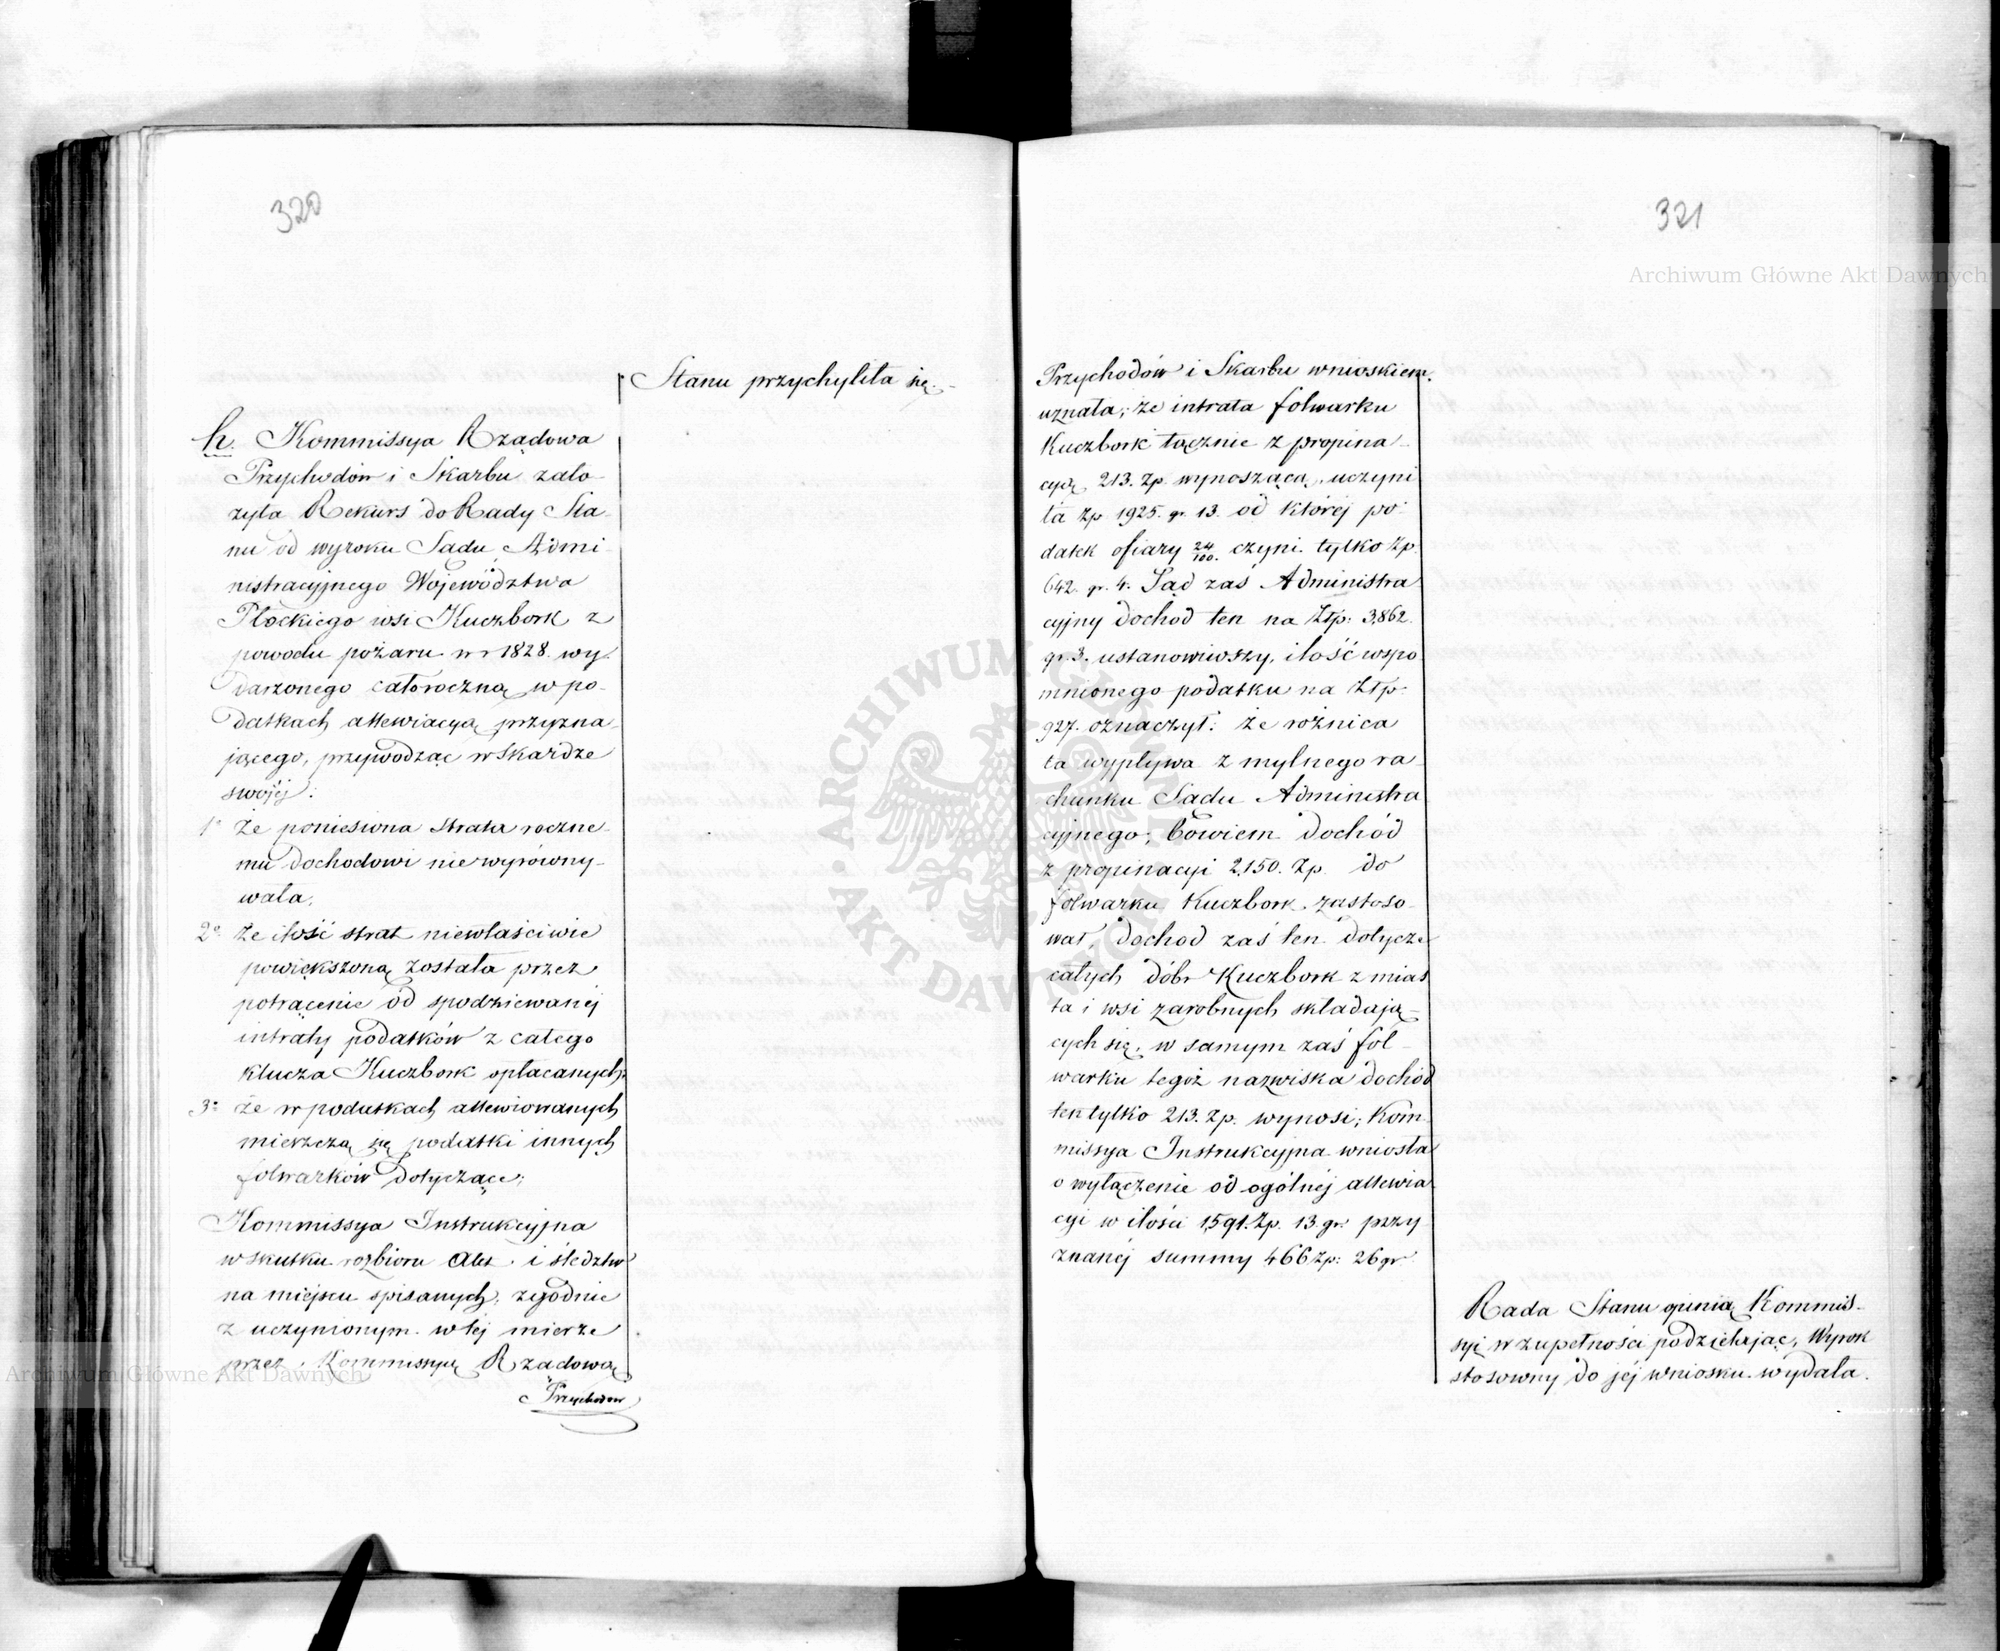 320
Stanu przychyliła się.
h. Kommissya Rządowa
Przychodów i Skarbu zało-
żyła Rekurs do Rady Sta-
nu od wyroku Sadu Admi-
nistracyjnego Województwa
Płockiego wsi Kuczbork z
powodu pożaru w r 1828. wy-
darzonego całoroczną w po-
datkach allewiacyą przyzna-
jącego, przywodząc w skardze
swójéj:
1° że poniesiona strata roczne-
mu dochodowi nie wyrówny-
wała,
2° że ilość strat niewłaściwie
powiększoną została przez
potrącenie od spodziewanéj
intraty podatków z całego
klucza Kuczbork opłacanych,
3° że w podatkach allewiowanych
mierzczą się podatki innych
folwarków dotyczące;
Kommissya Instrukcyjna
w skutku rozbioru Akt i śledztw
na miejscu spisanych, zgodnie
z uczynionym w téj mierze
przez Kommissyą Rządową
Przychodów
321
Przychodów i Skarbu wnioskiem
uznała, że intrata folwarku
Kuczbork łącznie z propina-
cyą 213. Zp. wynoszącą, uczyni
ła Zp 1925. gr. 13. od któréj po-
datek ofiary 24/100. czyni tylko Zp.
642. gr. 4. Sąd zaś Administra
cyjny dochod ten na Złp: 3,862.
gr. 3. ustanowiwszy, ilość wspo
mnionego podatku na Złp.
927. oznaczył: że rożnica
ta wypływa z mylnego ra-
chunku Sadu Administra
cyjnego, bowiem dochód
z propinacyi 2,150. Zp. do
folwarku Kuczbork zastoso-
wał, dochod zaś ten dotycze
całych dóbr Kuczbork z mias
ta i wsi zarobnych składają-
cych się, w samym zaś fol-
warku tegoż nazwiska dochód
ten tylko 213. Zp. wynosi; Kom-
missya Instrukcyjna wniosła
o wyłączenie od ogólnéj allewia
cyi w ilości 1,591. Zp. 13. gr. przy-
znanéj summy 466 Zp: 26 gr.
Rada Stanu opinią Kommis-
syi w zupełności podzielając, Wyrok
stosowny do jéj wniosku wydała.
Archiwum Główne Akt Dawnych
Archiwum Główne Akt Dawnych
ARCHIWUM GŁÓWNE AKT DAWNYCH